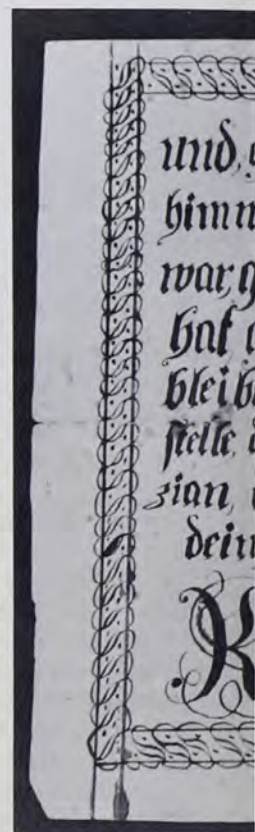 und,
himm
war, g
hat
bleibt
stelle,
zian,
dein
R